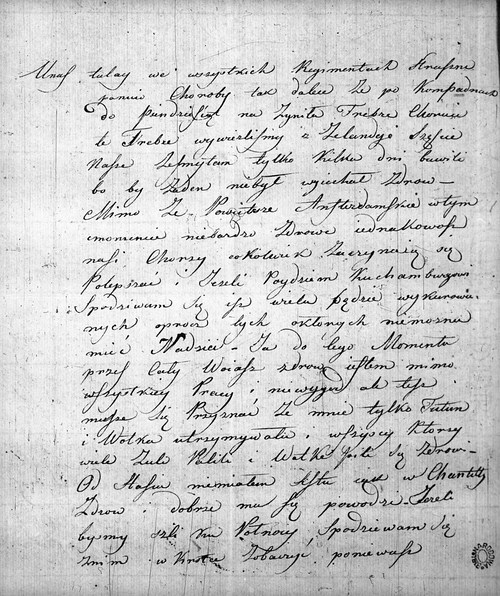 Unas tutay we wszystkich Regimentach Straszne
panuie Choroby tak dalece że po Kompaniach
do pundziesiąt na Zymne Febre Choruie
te Febre wywieźlismy z Zelandyi Szęscie
Nasze Żesmy tam tylko kilka dni bawili
bo by Żaden niebył wyiechał Zdrow
Mimo Że Powietrze Amsterdamskie w tym
momencie niebardzo Zdrowe iednakowoż
nasi Chorzy cokolwiek Zaczynaią się
Polepszać i Jezeli Poydziem Kuchamburgowi
Spodziwam się isz wielu będzie wykurowa-
nych oprocz tych oktorych niemozna
mieć Nadziei Ja do tego Momentu
przez Cały Woiasz zdrow iestem mimo
wszystkiey Pracy i niewygod ale tesz
musze się Przyznać Że mnie tylko Tutun
i Wotka utrzymywała i wszyscy Ktorzy
wiele Zuli Palili i Wotke Pili Są Zdrow-
Od Stasia miałem Listu iest w Chantilly
Zdrow i dobrze mu się powodzi Jezeli
bysmy szli ku Pułnocy Spodziewam się
Znim w Krotce Zobaczyć poniewasz